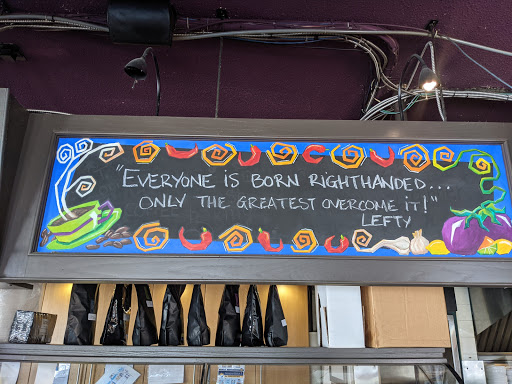 "EVERYONE IS BORN RIGHTHANDED...
ONLY THE GREATEST OVERCOME IT!"
LEFTY